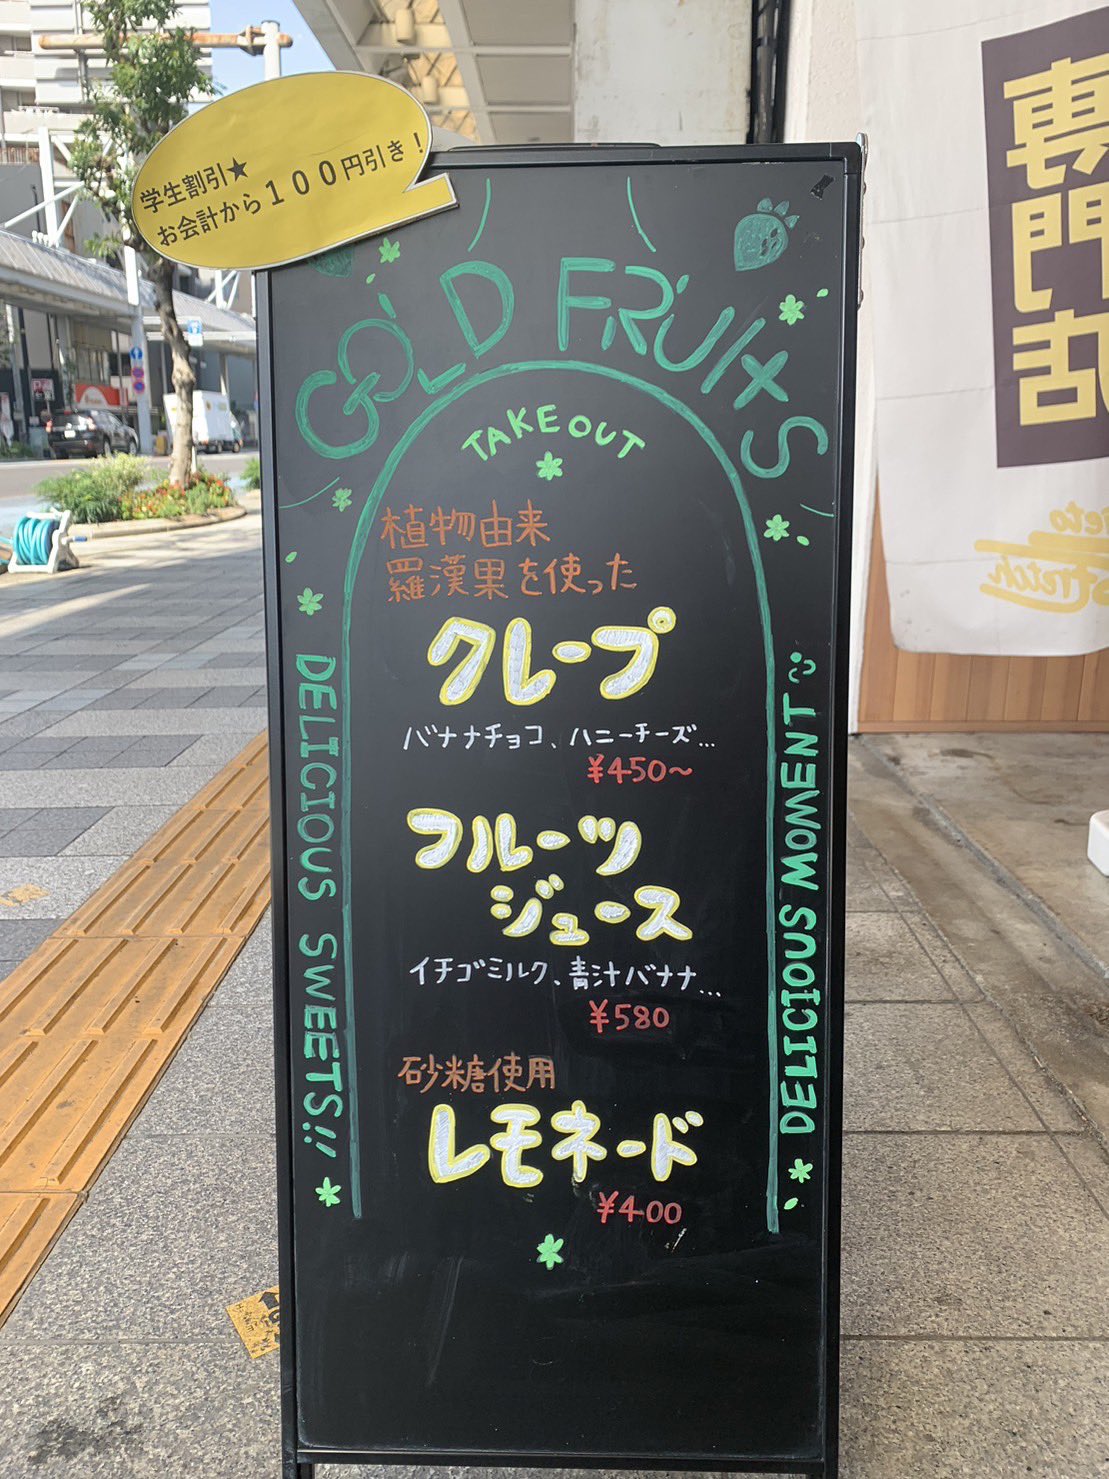 学生割引★
お会計から１００円引き！
GOLD FRUITS
TAKE OUT
植物由来
羅漢果を使った
クレープ
バナナチョコ、ハニーチーズ…
¥450〜
フルーツ
ジュース
イチゴミルク、青汁バナナ…
¥580
砂糖使用
レモネード
¥400
DELICIOUS SWEETS!!
DELICIOUS MOMENT
専門店